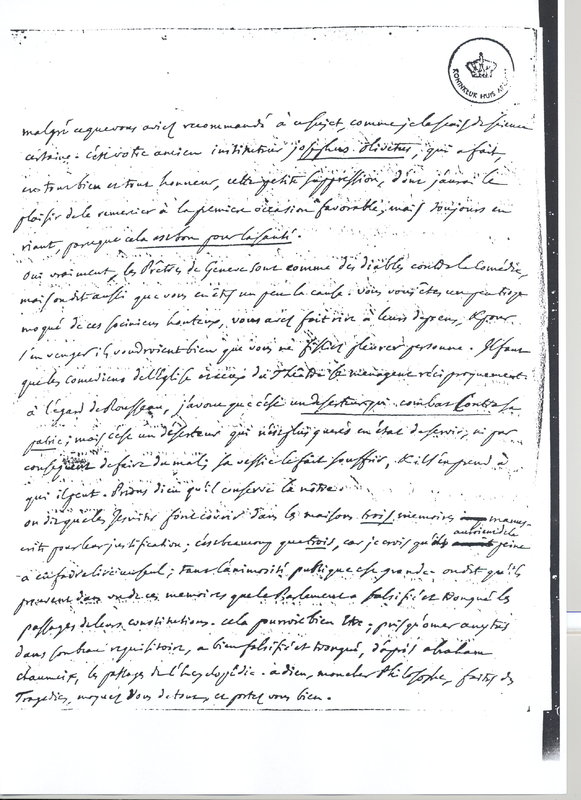 KONINKLIJK HUIS AR
malgré ce que vous aviez recommandé à ce sujet, comme je le sais de science
certaine. c'est votre ancien instituteur josephus olivetus, qui a fait,
en tout bien et tout honneur, cette petite suppression, dont j'aurai le
plaisir de le remercier à la premiere occasion favorable, mais toujours en
riant, parceque cela est bon pour la santé.
Oui vraiment, les Prêtres de Geneve sont comme des diables contre la Comédie,
mais on dit aussi que vous en êtes un peu la cause. vous vous êtes un peu trop
moqué de ces sociniens honteux, vous avez fait rire à leurs depens, & pour
s'en venger ils voudroient bien que vous ne fissiez pleurer personne. Il faut
que les comediens de l'Eglise & ceux du Théâtre se menagent réciproquement.
à l'égard de Rousseau, j'avoue que c'est un deserteur qui combat contre sa
patrie; mais c'est un déserteur qui n'est plus guere en état de servir, ni par
consequent de faire du mal; sa vessie le fait souffrir, & il s'en prend à
qui il peut. Prions dieu qu'il conserve la nôtre.
on dit que les Jesuites font courir dans les maisons trois memoires manus-
crits pour leur justification; c'est beaucoup que trois, car je crois qu'ils auroient de la peine
à en faire lire un seul; tant l'animosité publique est grande. on dit qu'ils
prouvent dans un de ces memoires que le Parlement a falsifié et tronqué les
passages de leurs constitutions. cela pourroit bien être; puisqu'omer
dans son beau requisitoire, a bien falsifié et tronqué, d'après abraham
chaumeix, les passages de l'Encyclopédie. adieu, mon cher Philosophe, faites des
Tragedies, moquez vous de tout, et portez vous bien.